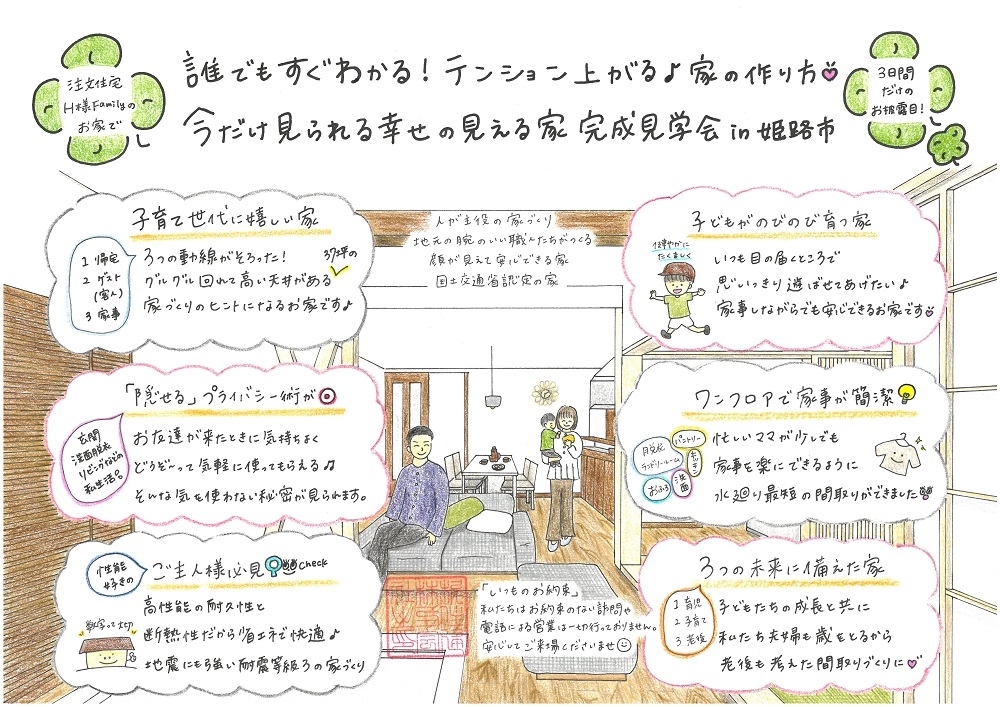 注文住宅
H様Familyの
お家で
誰でもすぐわかる！テンション上がる♪家の作り方
今だけ見られる幸せの見える家 完成見学会 in 姫路市
3日間
だけの
お披露目！
子育て世代に嬉しい家
1 帰宅
2 ゲスト
(客人)
3 家事
3つの動線がそろった！ 37坪の
グルグル回れて高い天井がある
家づくりのヒントになるお家です♪
人が主役の家づくり
地元の腕のいい職人たちがつくる
顔が見えて安心できる家
国土交通省認定の家
子どもがのびのび育つ家
健やかに
たくましく
いつも目の届くところで
思いっきり遊ばせてあげたい♪
家事しながらでも安心できるお家です
「隠せる」プライバシー術が◎
玄関
洗面脱衣
リビングなどの
私生活。
お友達が来たときに気持ちよく
どうぞって気軽に使ってもらえる♫
そんな気を使わない秘密が見られます。
ワンフロアで家事が簡潔
脱衣
ランドリールーム
パントリー
キッチン
おふろ
洗面
忙しいママが少しでも
家事を楽にできるように
水廻り最短の間取りができました
性能
好きの
ご主人様必見 check
数字って大切
高性能の耐久性と
断熱性だから省エネで快適♪
地震にも強い耐震等級3の家づくり
「いつものお約束」
私たちはお約束のない訪問や
電話による営業は一切行っておりません。
安心してご来場くださいませ
3つの未来に備えた家
1 育児
2 子育て
3 老後
子どもたちの成長と共に
私たち夫婦も歳をとるから
老後も考えた間取りづくりに